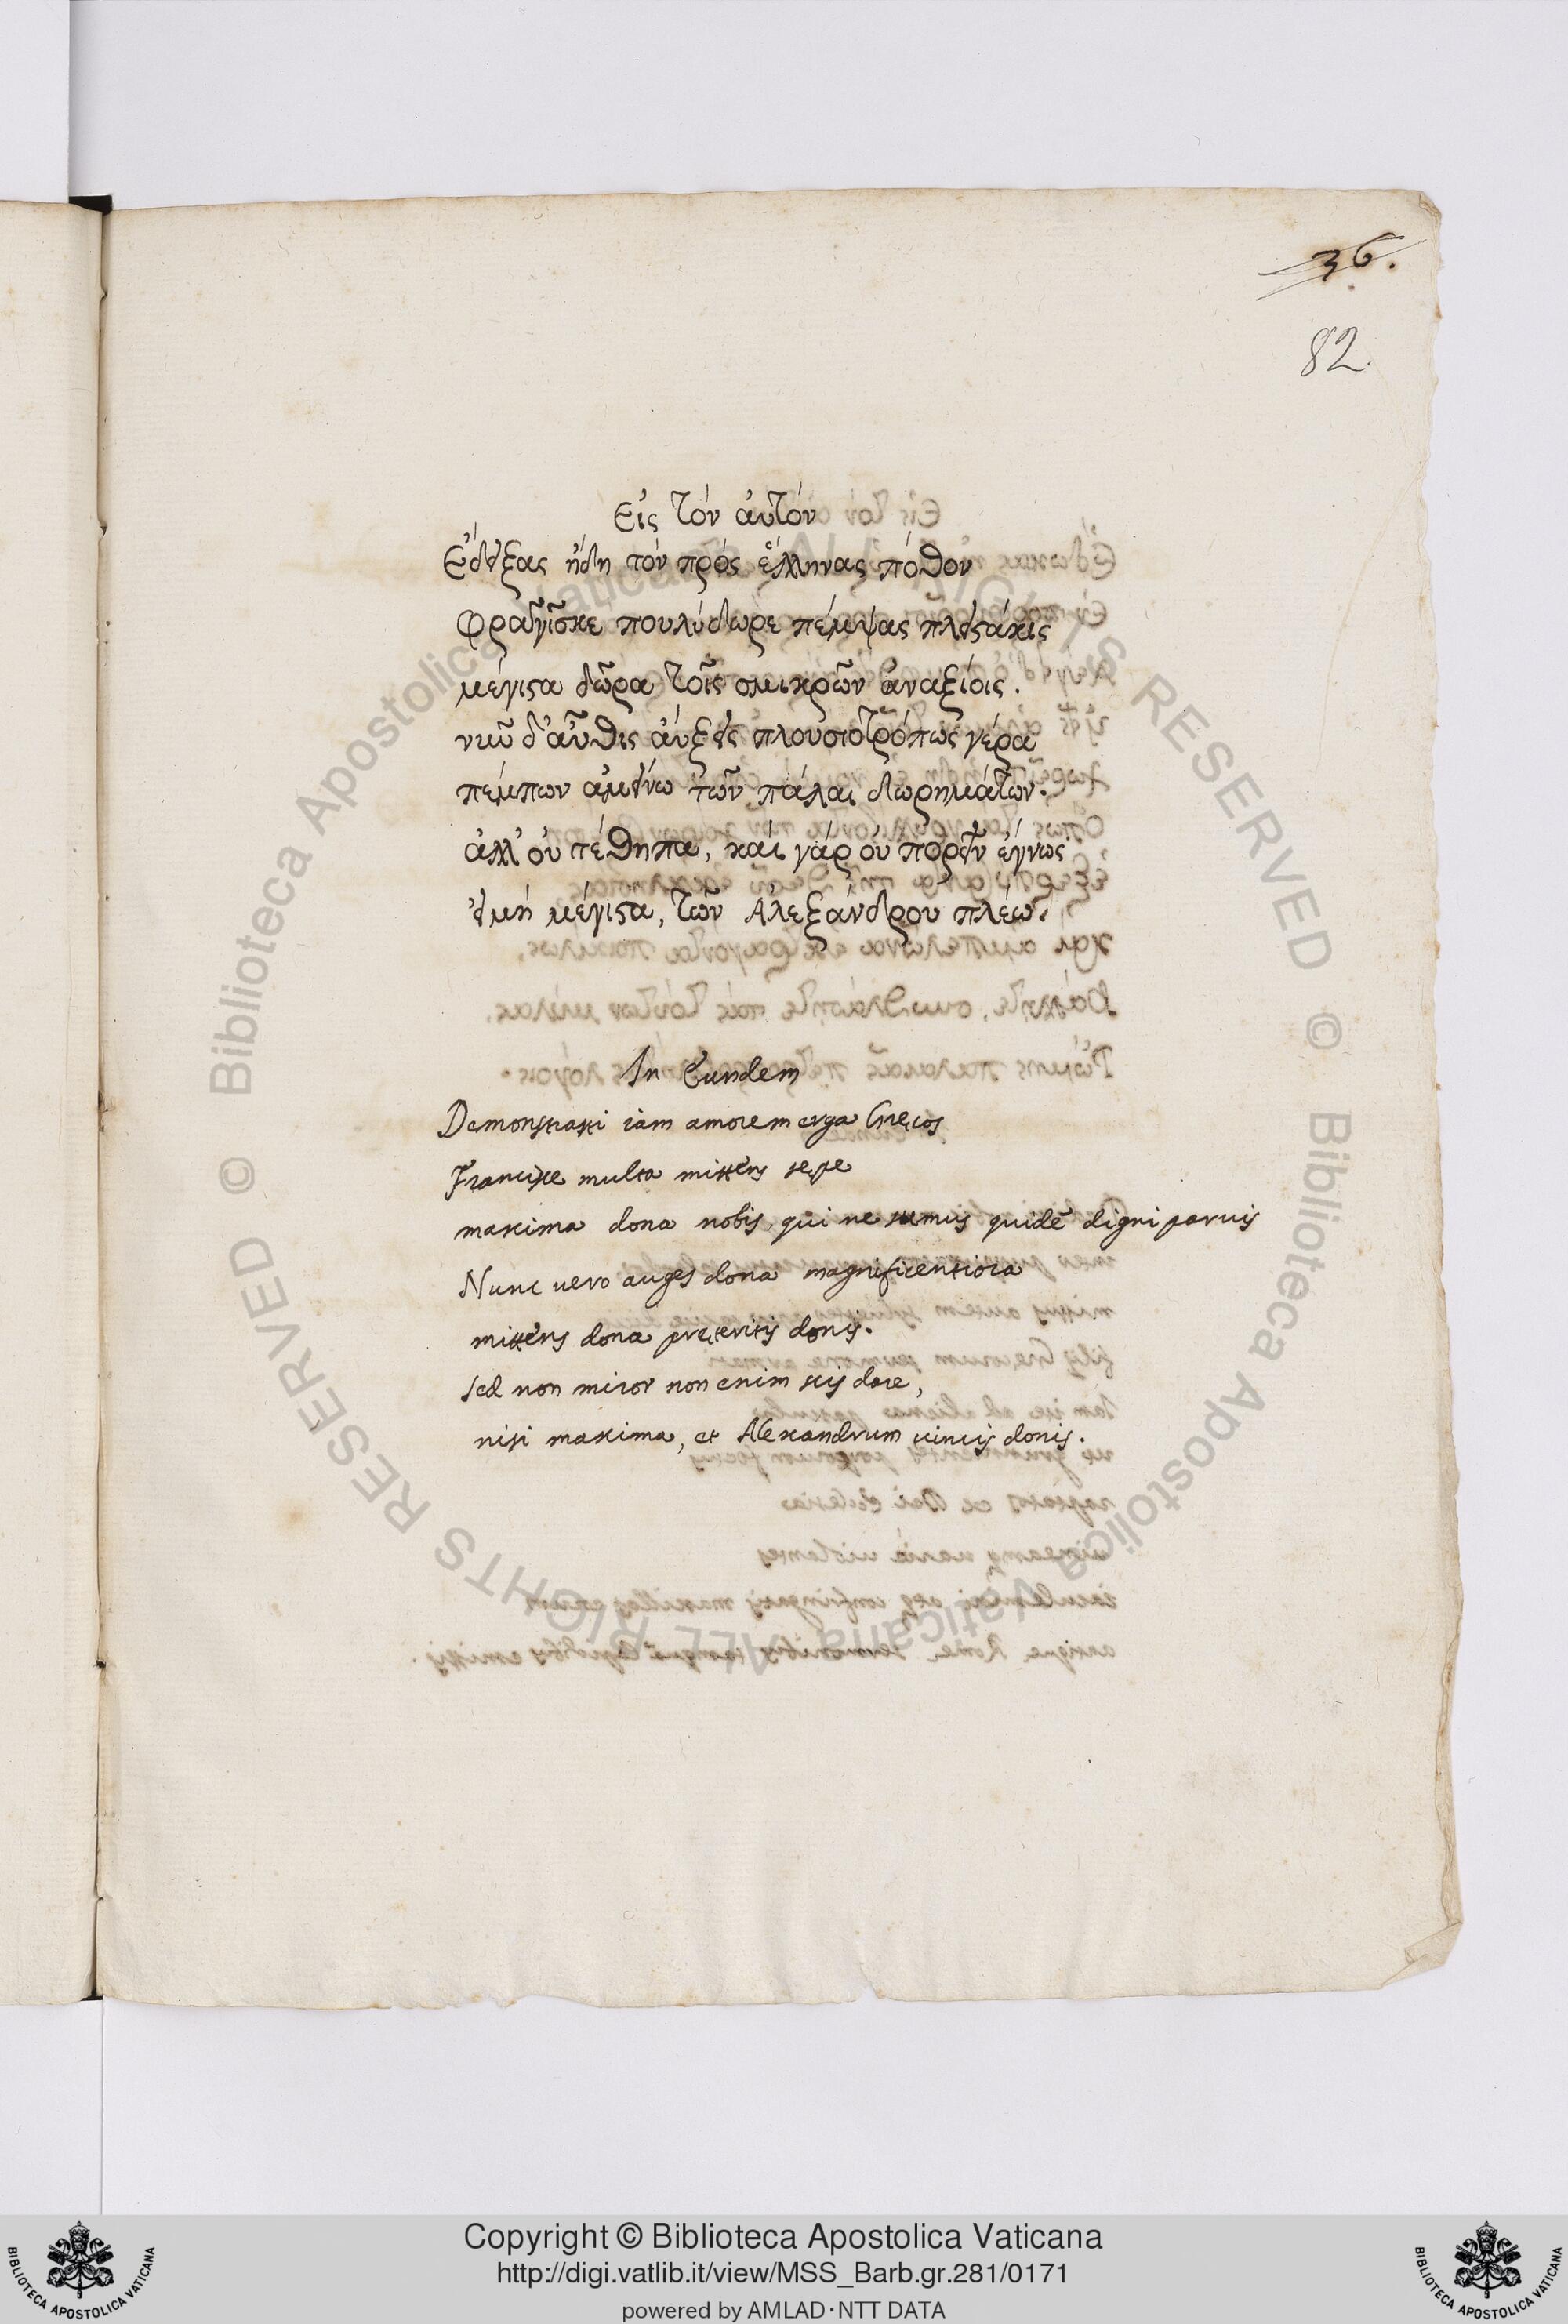 36.
82
Εἰς τὸν αὐτόν
Ἔδειξας ἤδη τόν πρός ἕλληνας πόθον
Φραγγῖσκε πουλύδωρε πέμψας πλειςάκις
μέγιςα δῶρα τοῖς σμικρῶν ἀναξίοις.
νῦν δ' αὖθις ἀύξεις πλουσιοτρόπως γέρα
πέμπων ἀμείνω τῶν πάλαι δωρημάτων.
ἀλλ' ὀυ τέθηπα, καὶ γάρ ὀυ πορεῖν ἔγνως
εἰμή μέγιςα, τῶν Ἀλεξάνδρου πλέω.
In Eundem
Demonstrasti iam amorem erga Gręcos
Francisce multa mittens sepe
maxima dona nobis, qui ne sumus quidē digni paruis
Nunc uero auges dona magnificentiora
mittens dona pręteritis donis.
sed non miror non enim scis dare,
nisi maxima, et Alexandrum uincis donis.
© Biblioteca Apostolica Vaticana ALL RIGHTS RESERVED
© Biblioteca Apostolica Vaticana ALL RIGHTS RESERVED
Copyright © Biblioteca Apostolica Vaticana
http://digi.vatlib.it/view/MSS_Barb.gr.281/0171
powered by AMLAD·NTT DATA
BIBLIOTECA APOSTOLICA VATICANA
BIBLIOTECA APOSTOLICA VATICANA